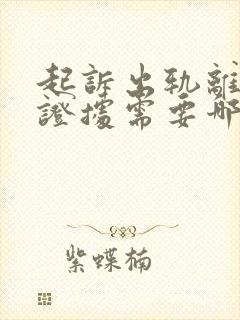 起訴出軌離
證據需要哪
紫蝶楠